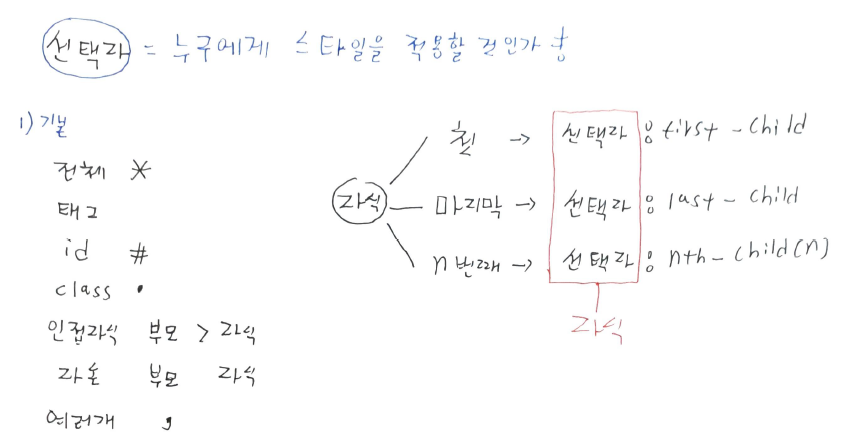 선택자 = 누구에게 스타일을 적용할 것인가
1) 기본
전체 *
태그
id #
class .
인접자식 부모 > 자식
자손 부모 자식
여러개 ,
자식
첫 → 선택자 : first - child
마지막 → 선택자 : last - child
n번째 → 선택자 : nth - child(n)
자식